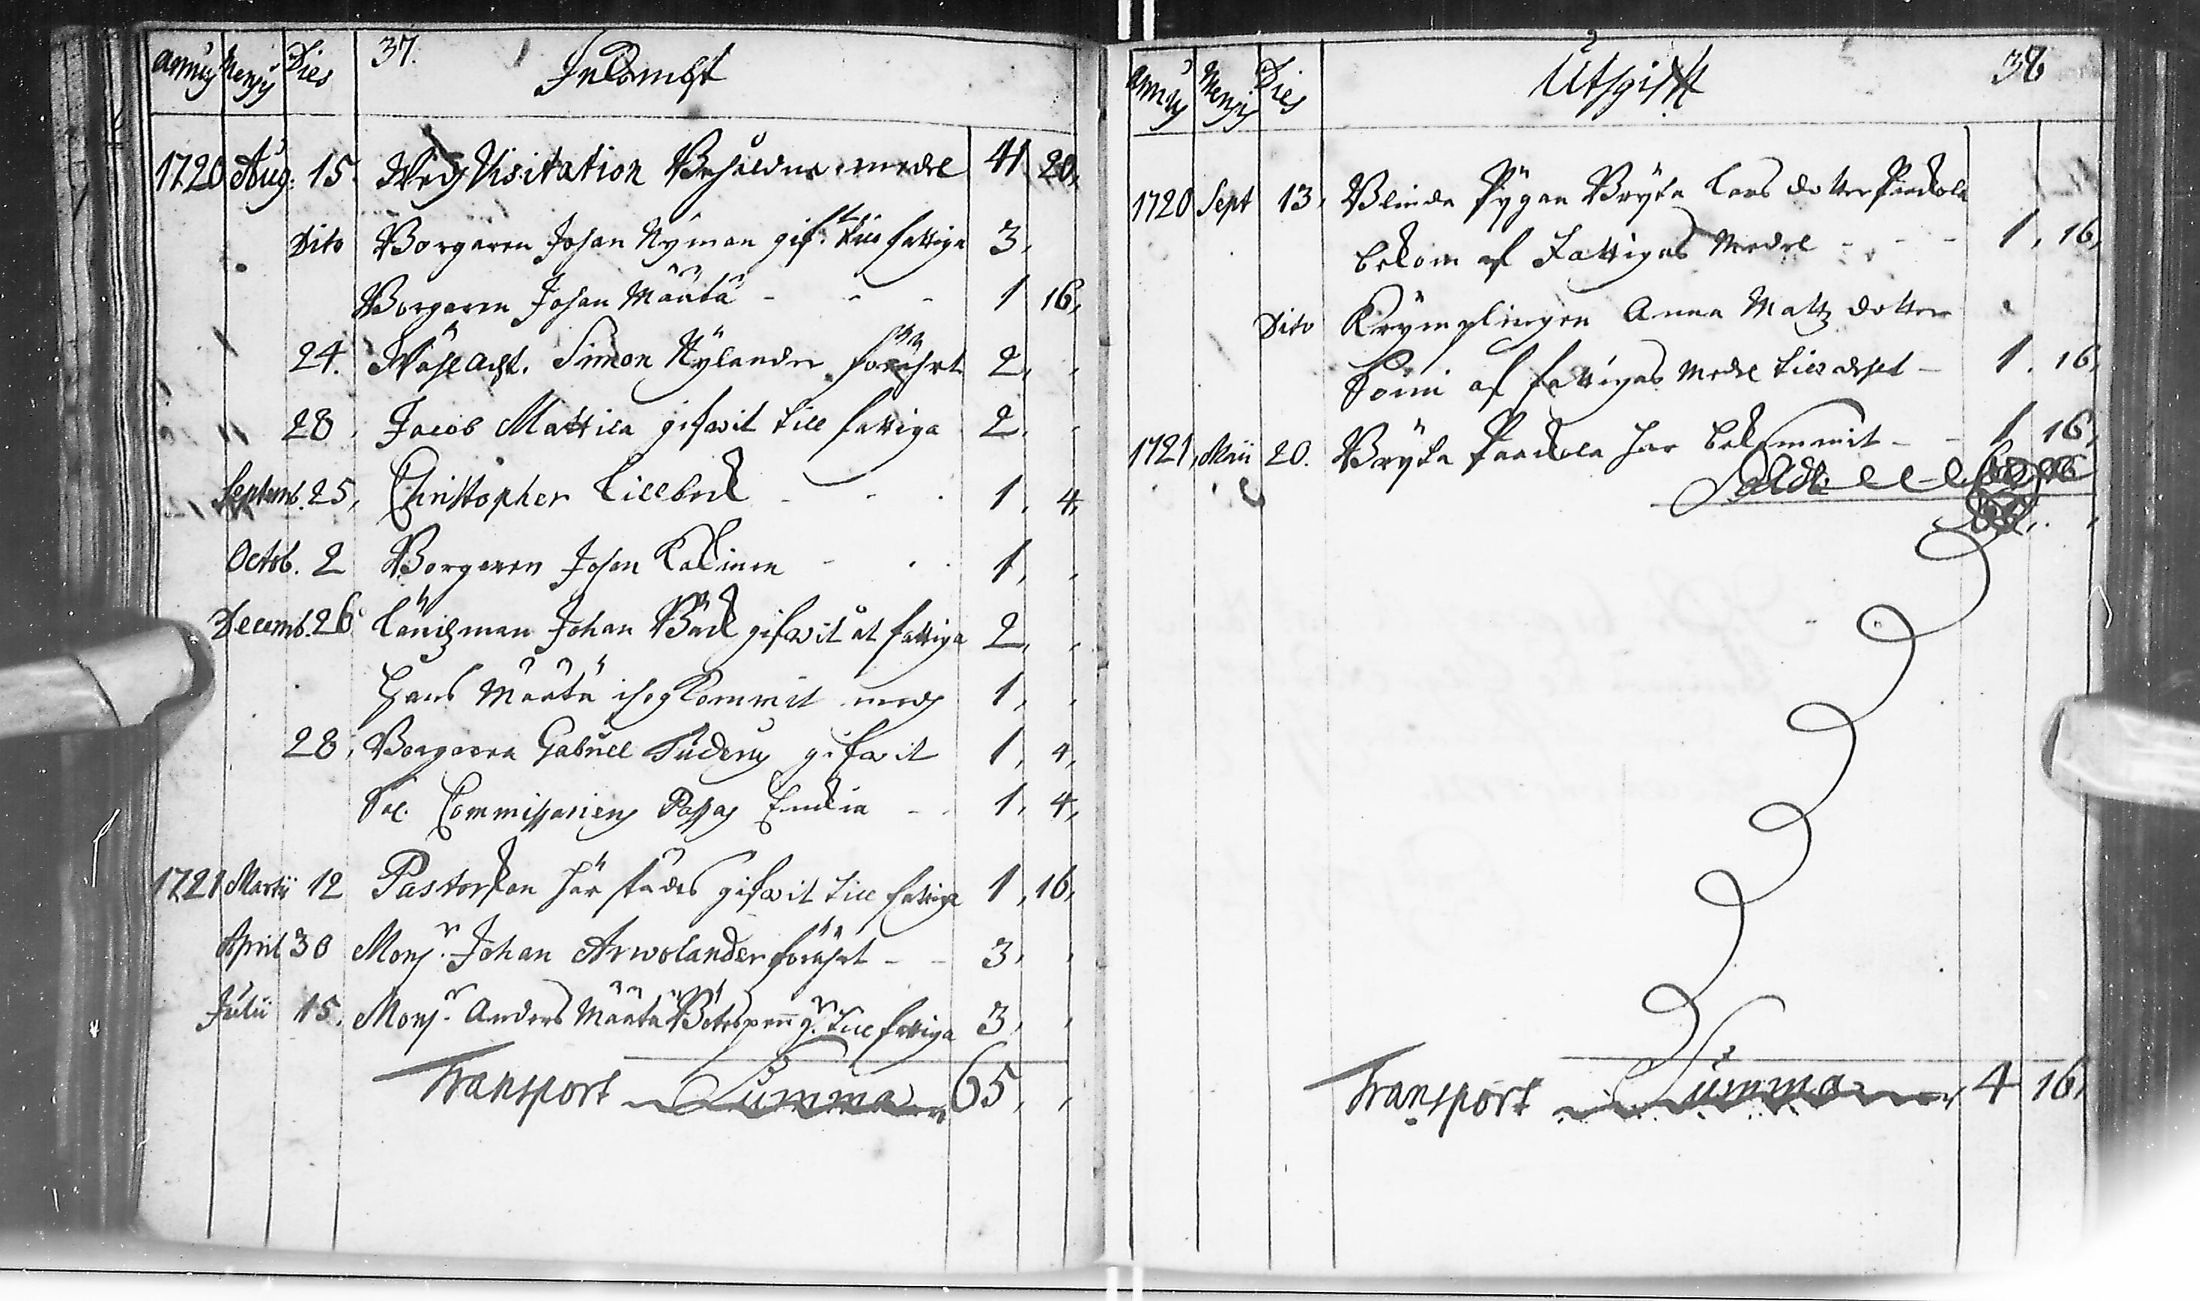 Annus Mensis Dies 37. Inkombst
1720 Aug: 15. Wedh Visitation Behåldne medel 41. 20,
Dito Borgaren Johan Nyman gif.t till fattiga 3,
Borgaren Johan Määtä - - - 1 16,
24. Simon Nylander förährt 2, ,
28. Jacob Mattila gifwit till fattiga 2. ,
Septemb. 25, Christopher Lillbeck - - - 1, 4,
Octob. 2 Borgaren Johan Kakinen - - - 1, ,
Decemb. 26 Länsman Johan Bäck gifwit åt fattiga 2, ,
Hans Määtä ihogkommit medh 1, ,
28, Borgaren Gabriell Tuderus gifwit 1, 4,
Sal. Commissariens Enckia - - 1, 4,
1721 Martii 12 Pastorskan här städes gifwit till fattiga 1, 16,
April 30 Monsr. Johan Arwolander förährt - - 3, ,
Julii 15. Monsr. Anders Määtä till fattiga 3, ,
Transport Summa 65, ,
Annus Mensis Dies Utgifft 38
1720 Sept 13, Blinda Pygan Bryta Lars dotter Paakola
bekom af Fattigas Medel - - - 1, 16,
Dito Krymplingen Anna Matz dotter
Somi af fattigas Medel tilldehlt - 1. 16,
1721, Maii 20. Bryta Paakola har bekommit - - 1 16,
Transport Summa 4 16,